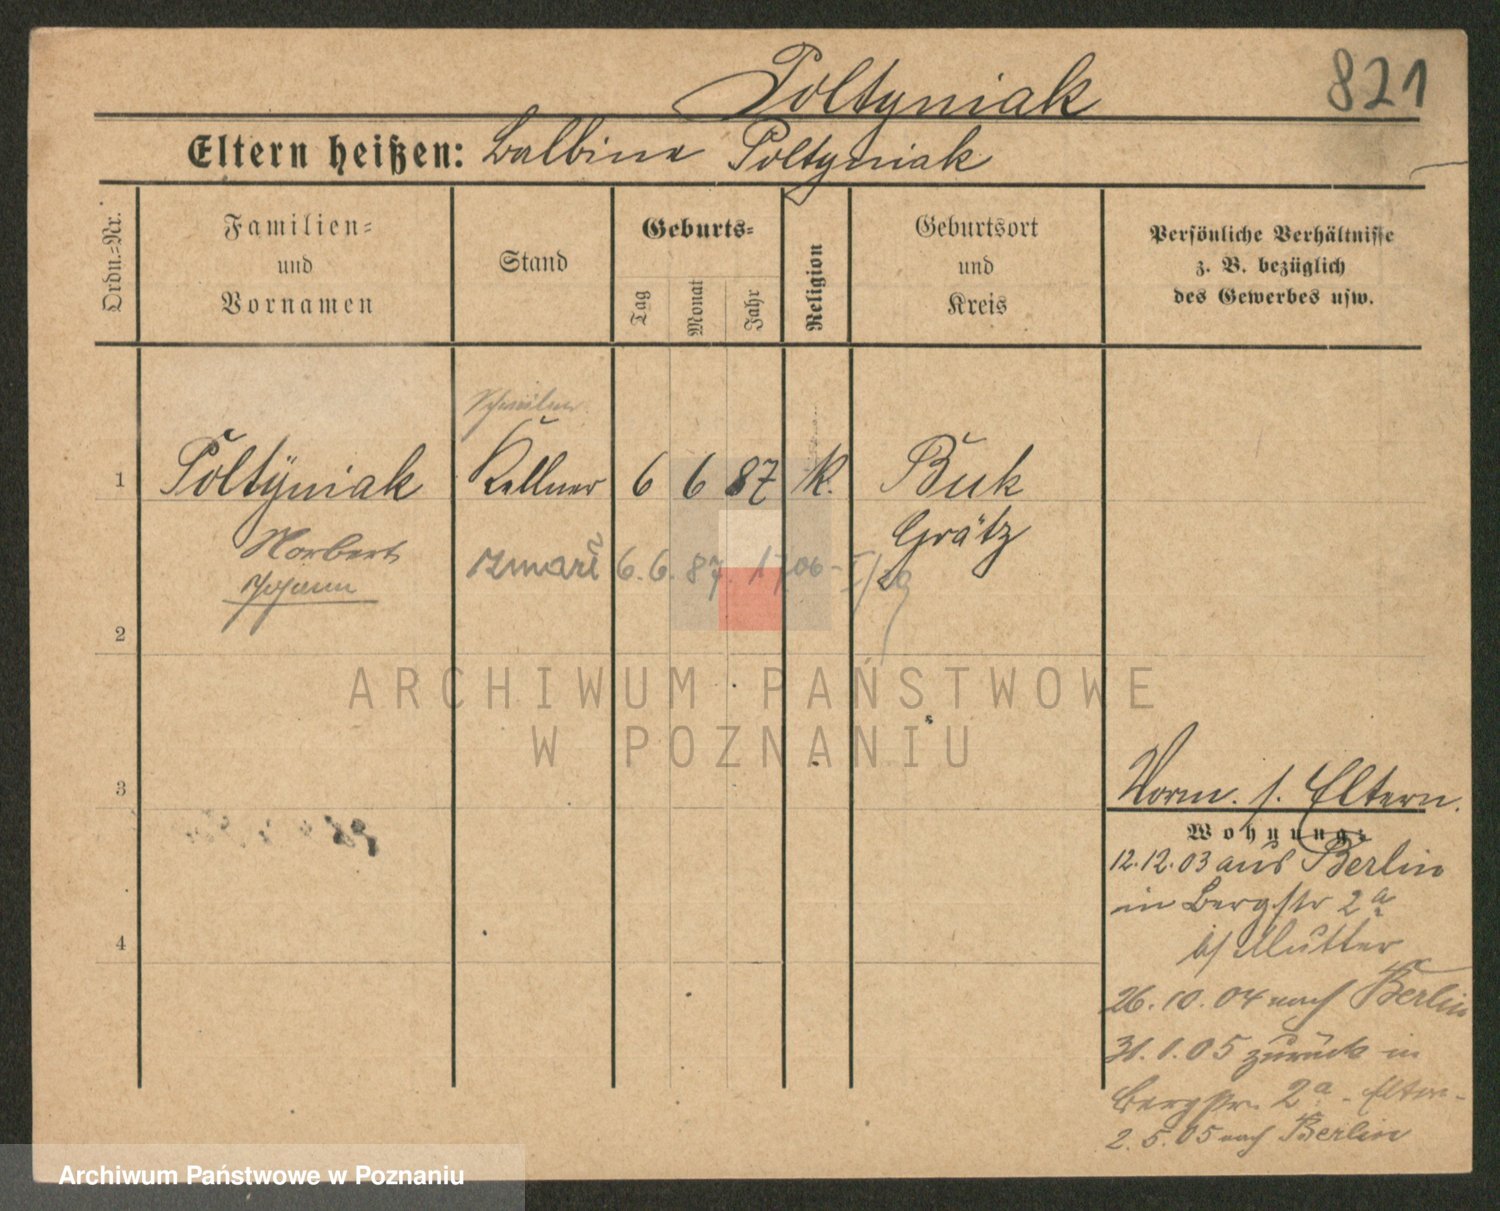 Poltyniak
821
Eltern heißen: Balbina Poltyniak
Ordn.-Nr.
Familien-
und
Vornamen
Stand
Geburts-
Tag
Monat
Jahr
Religion
Geburtsort
und
Kreis
Persönliche Verhältnisse
z. B. bezüglich
des Gewerbes usw.
1
Poltÿniak
Kellner
6
6
87
k.
Buk
Grätz
Norbert
Johann
zmarł 6.6.87. 17/06 - I/29
2
ARCHIWUM PAŃSTWOWE
W POZNANIU
3
Vorm. s. Eltern.
Wohnung:
12.12.03 aus Berlin
in Bergstr 2a
b/ Mutter
4
26.10.04 nach Berlin
31.1.05 zurück in
Bergstr. 2a - Eltern -
2.5.05 nach Berlin
Archiwum Państwowe w Poznaniu